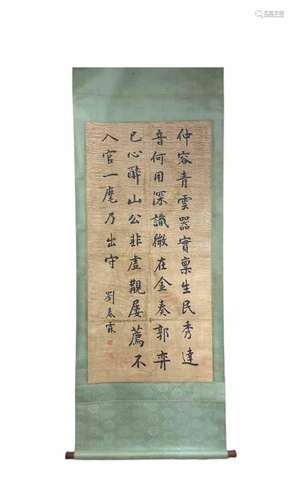 仲容青雲器實稟生民秀達
音何用深識微在金奏郭弈
已心醉山公非虛覯屢薦不
入官一麾乃出守
劉春霖